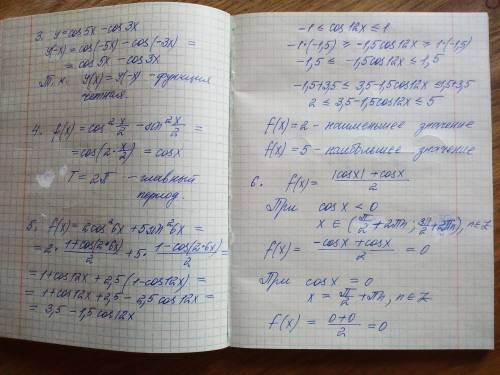 3. y = cos5x - cos3x
y(-x) = cos(-5x) - cos(-3x) =
= cos5x - cos3x
Т.к. y(x) = y(-x) - функция
четная.
4. f(x) = cos² x/2 - sin² x/2 =
= cos(2·x/2) = cosx
T = 2π - главный
период.
5. f(x) = 2cos²6x + 5sin²6x =
= 2· (1+cos(2·6x))/2 + 5· (1-cos(2·6x))/2 =
= 1+cos12x + 2,5(1-cos12x) =
= 1+cos12x + 2,5 - 2,5cos12x =
= 3,5 - 1,5cos12x
-1 ≤ cos12x ≤ 1
-1·(-1,5) ≥ -1,5cos12x ≥ 1·(-1,5)
-1,5 ≤ -1,5cos12x ≤ 1,5
-1,5+3,5 ≤ 3,5-1,5cos12x ≤ 1,5+3,5
2 ≤ 3,5-1,5cos12x ≤ 5
f(x) = 2 - наименьшее значение
f(x) = 5 - наибольшее значение
6. f(x) = (|cosx| + cosx)/2
При cosx < 0
x ∈ (π/2 + 2πn; 3π/2 + 2πn), n∈Z
f(x) = (-cosx + cosx)/2 = 0
При cosx = 0
x = π/2 + πn, n∈Z
f(x) = (0+0)/2 = 0